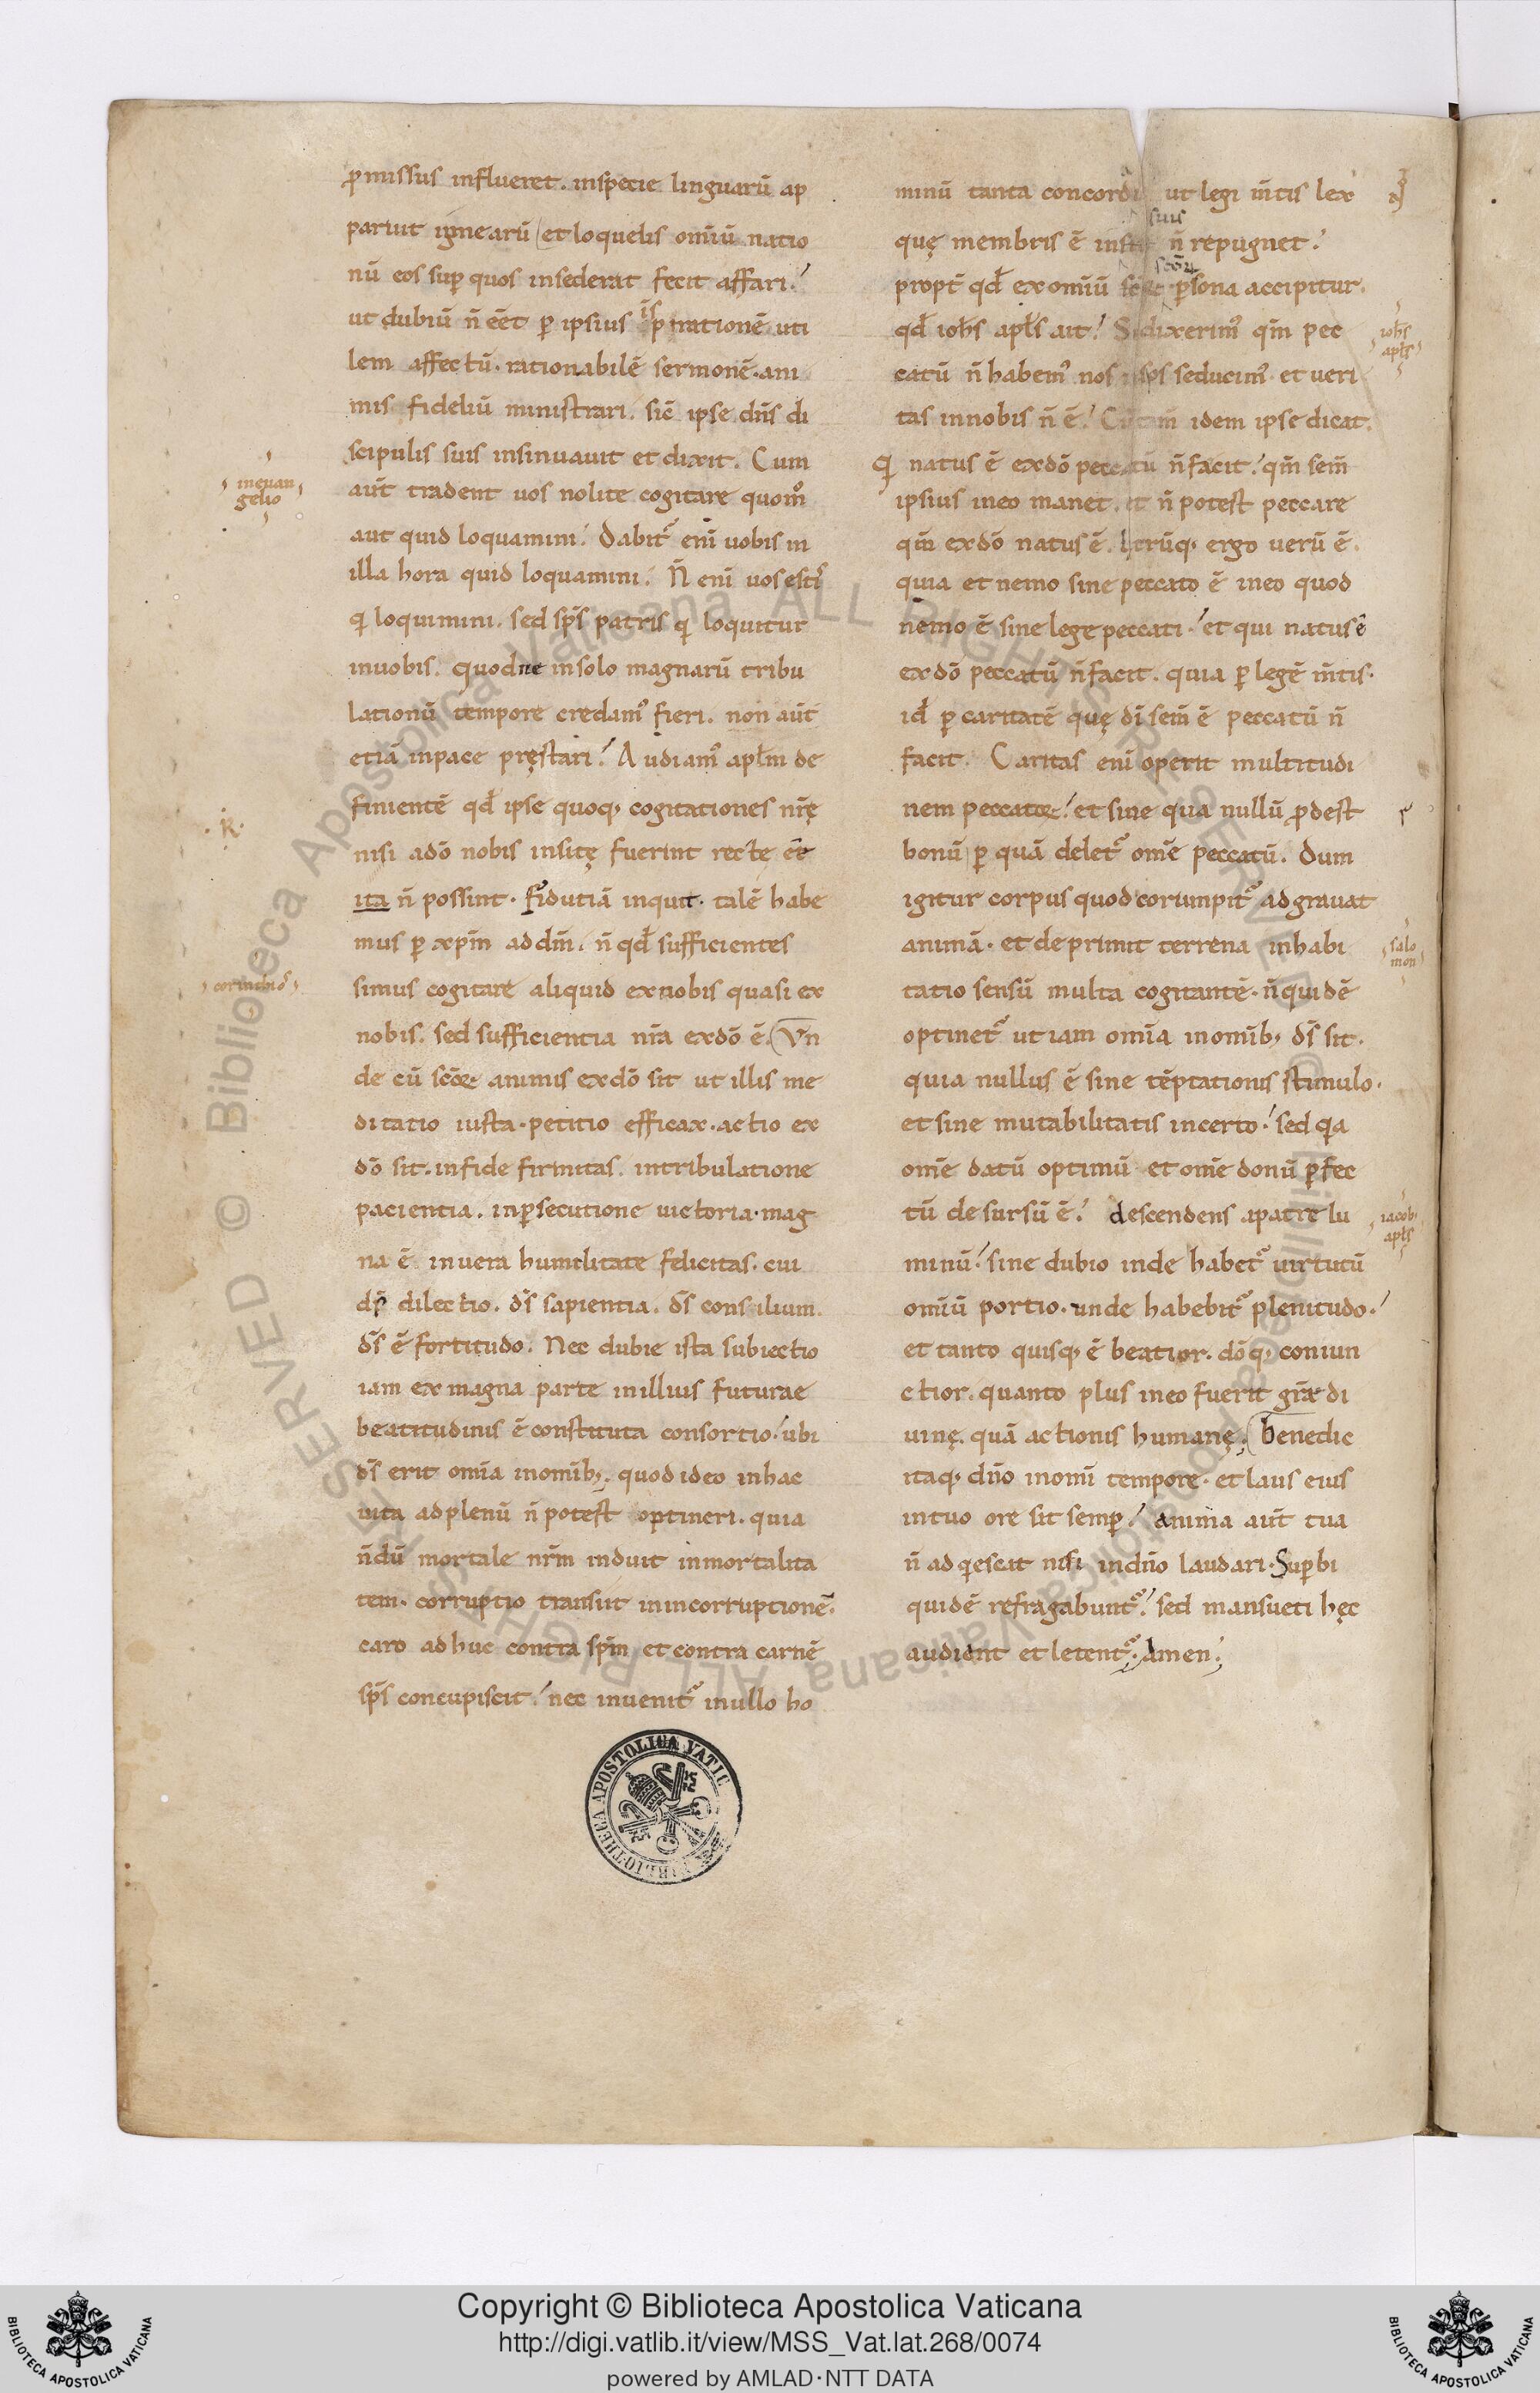 p̄missus influeret. inspecie linguarū ap
paruit ignearū et loquelis om̄iū natio
nū eos sup̄ quos insederat fecit affari.
ut dubiū n̄ eēt p̄ ipsius is pirationē uti
lem affectū. rationabilē sermonē. ani
mis fideliū ministrari. sic̄ ipse dn̄s di
scipulis suis insinuauit et dixit. Cum
aut̄ tradent uos nolite cogitare quom̊
aut quid loquamini. Dabit᷑ enī uobis in
illa hora quid loquamini. N̄ enī uos estis
q loquimini. sed sp̄s patris q loquitur
inuobis. quod ne insolo magnarū tribu
lationū tempore credam᷒ fieri. non aut̄
etiā inpace pręstari. Audiam᷒ apl̄m de
finientē qd̄ ipse quoq; cogitationes nr̄ę
nisi adō nobis insitę fuerint recte eē
ita n̄ possint. Fidutiā inquit. talē habe
mus p̄ xp̄m add̄m. n̄ qd̄ sufficientes
simus cogitare aliquid exnobis quasi ex
nobis. sed sufficientia nr̄a exdō ē. Vn
de cū scōꝝ animis exdō sit ut illis me
ditatio iusta. petitio efficax. actio ex
dō sit. infide firmitas. intribulatione
pacientia. inp̄secutione uictoria. mag
na ē inuera humilitate felicitas. cui
ds̄ dilectio. ds̄ sapientia. ds̄ consilium.
ds̄ ē fortitudo. Nec dubie ista subiectio
iam ex magna parte inillius futurae
beatitudinis ē constituta consortio. ubi
ds̄ erit om̄ia inom̄ib;. quod ideo inhac
uita adplenū n̄ potest optineri. quia
n̄dū mortale nr̄m induit inmortalita
tem. corruptio transiit inincorruptionē.
caro adhuc contra sp̄m et contra carnē
sp̄s concupiscit. nec inuenit᷑ inullo ho
inevan
gelio
.R.
corinthios
minū tanta concordi ut legi m̄tis lex
suis
quę membris ē n̄ repugnet.
scōꝝ
propt̄ qd̄ ex om̄iū p̄sona accipitur.
qd̄ ioh̄s apl̄s ait. Si dixerim᷒ qm̄ pec
catū n̄ habem᷒ nos ipsos seducim᷒ et ueri
tas innobis n̄ ē. Cū tam̄ idem ipse dicat.
Q natus ē exdō peccatū n̄ facit. qm̄ sem̄
ipsius ineo manet. et n̄ potest peccare
qm̄ exdō natus ē. Utrūq; ergo uerū ē.
quia et nemo sine peccato ē ineo quod
nemo ē sine lege peccati. et qui natus ē
exdō peccatū n̄ facit. quia p̄ legē m̄tis.
id̄ p̄ caritatē quę dī sem̄ ē peccatū n̄
facit. Caritas enī operit multitudi
nem peccatoꝝ. et sine qua nullū p̄dest
bonū p̄ quā delet᷑ om̄e peccatū. Dum
igitur corpus quod corrumpit᷑ adgrauat
animā. et deprimit terrena inhabi
tatio sensū multa cogitantē. n̄ quidē
optinet᷑ ut iam om̄ia inom̄ib; ds̄ sit.
quia nullus ē sine tēptationis stimulo.
et sine mutabilitatis incerto. sed qa
om̄e datū optimū et om̄e donū p̄fec
tū desursū ē. descendens apatre lu
minū. sine dubio inde habet᷑ uirtutū
om̄iū portio. unde habebit᷑ plenitudo.
et tanto quisq; ē beatior. dōq; coniun
ctior. quanto plus ineo fuerit grae di
uinę. quā actionis humanę. benedic
itaq; dn̄o inomī tempore. et laus eius
intuo ore sit semp̄. anima aut̄ tua
n̄ adqescat nisi indn̄o laudari. Sup̄bi
quidē refragabunt᷑. sed mansueti hęc
audiant et letent᷑. Amen.
ioh̄s
apl̄s
salo
mon
iacob;
apl̄s
BIBLIOTHECA APOSTOLICA VATIC
Copyright © Biblioteca Apostolica Vaticana
http://digi.vatlib.it/view/MSS_Vat.lat.268/0074
powered by AMLAD·NTT DATA
BIBLIOTECA APOSTOLICA VATICANA
BIBLIOTECA APOSTOLICA VATICANA